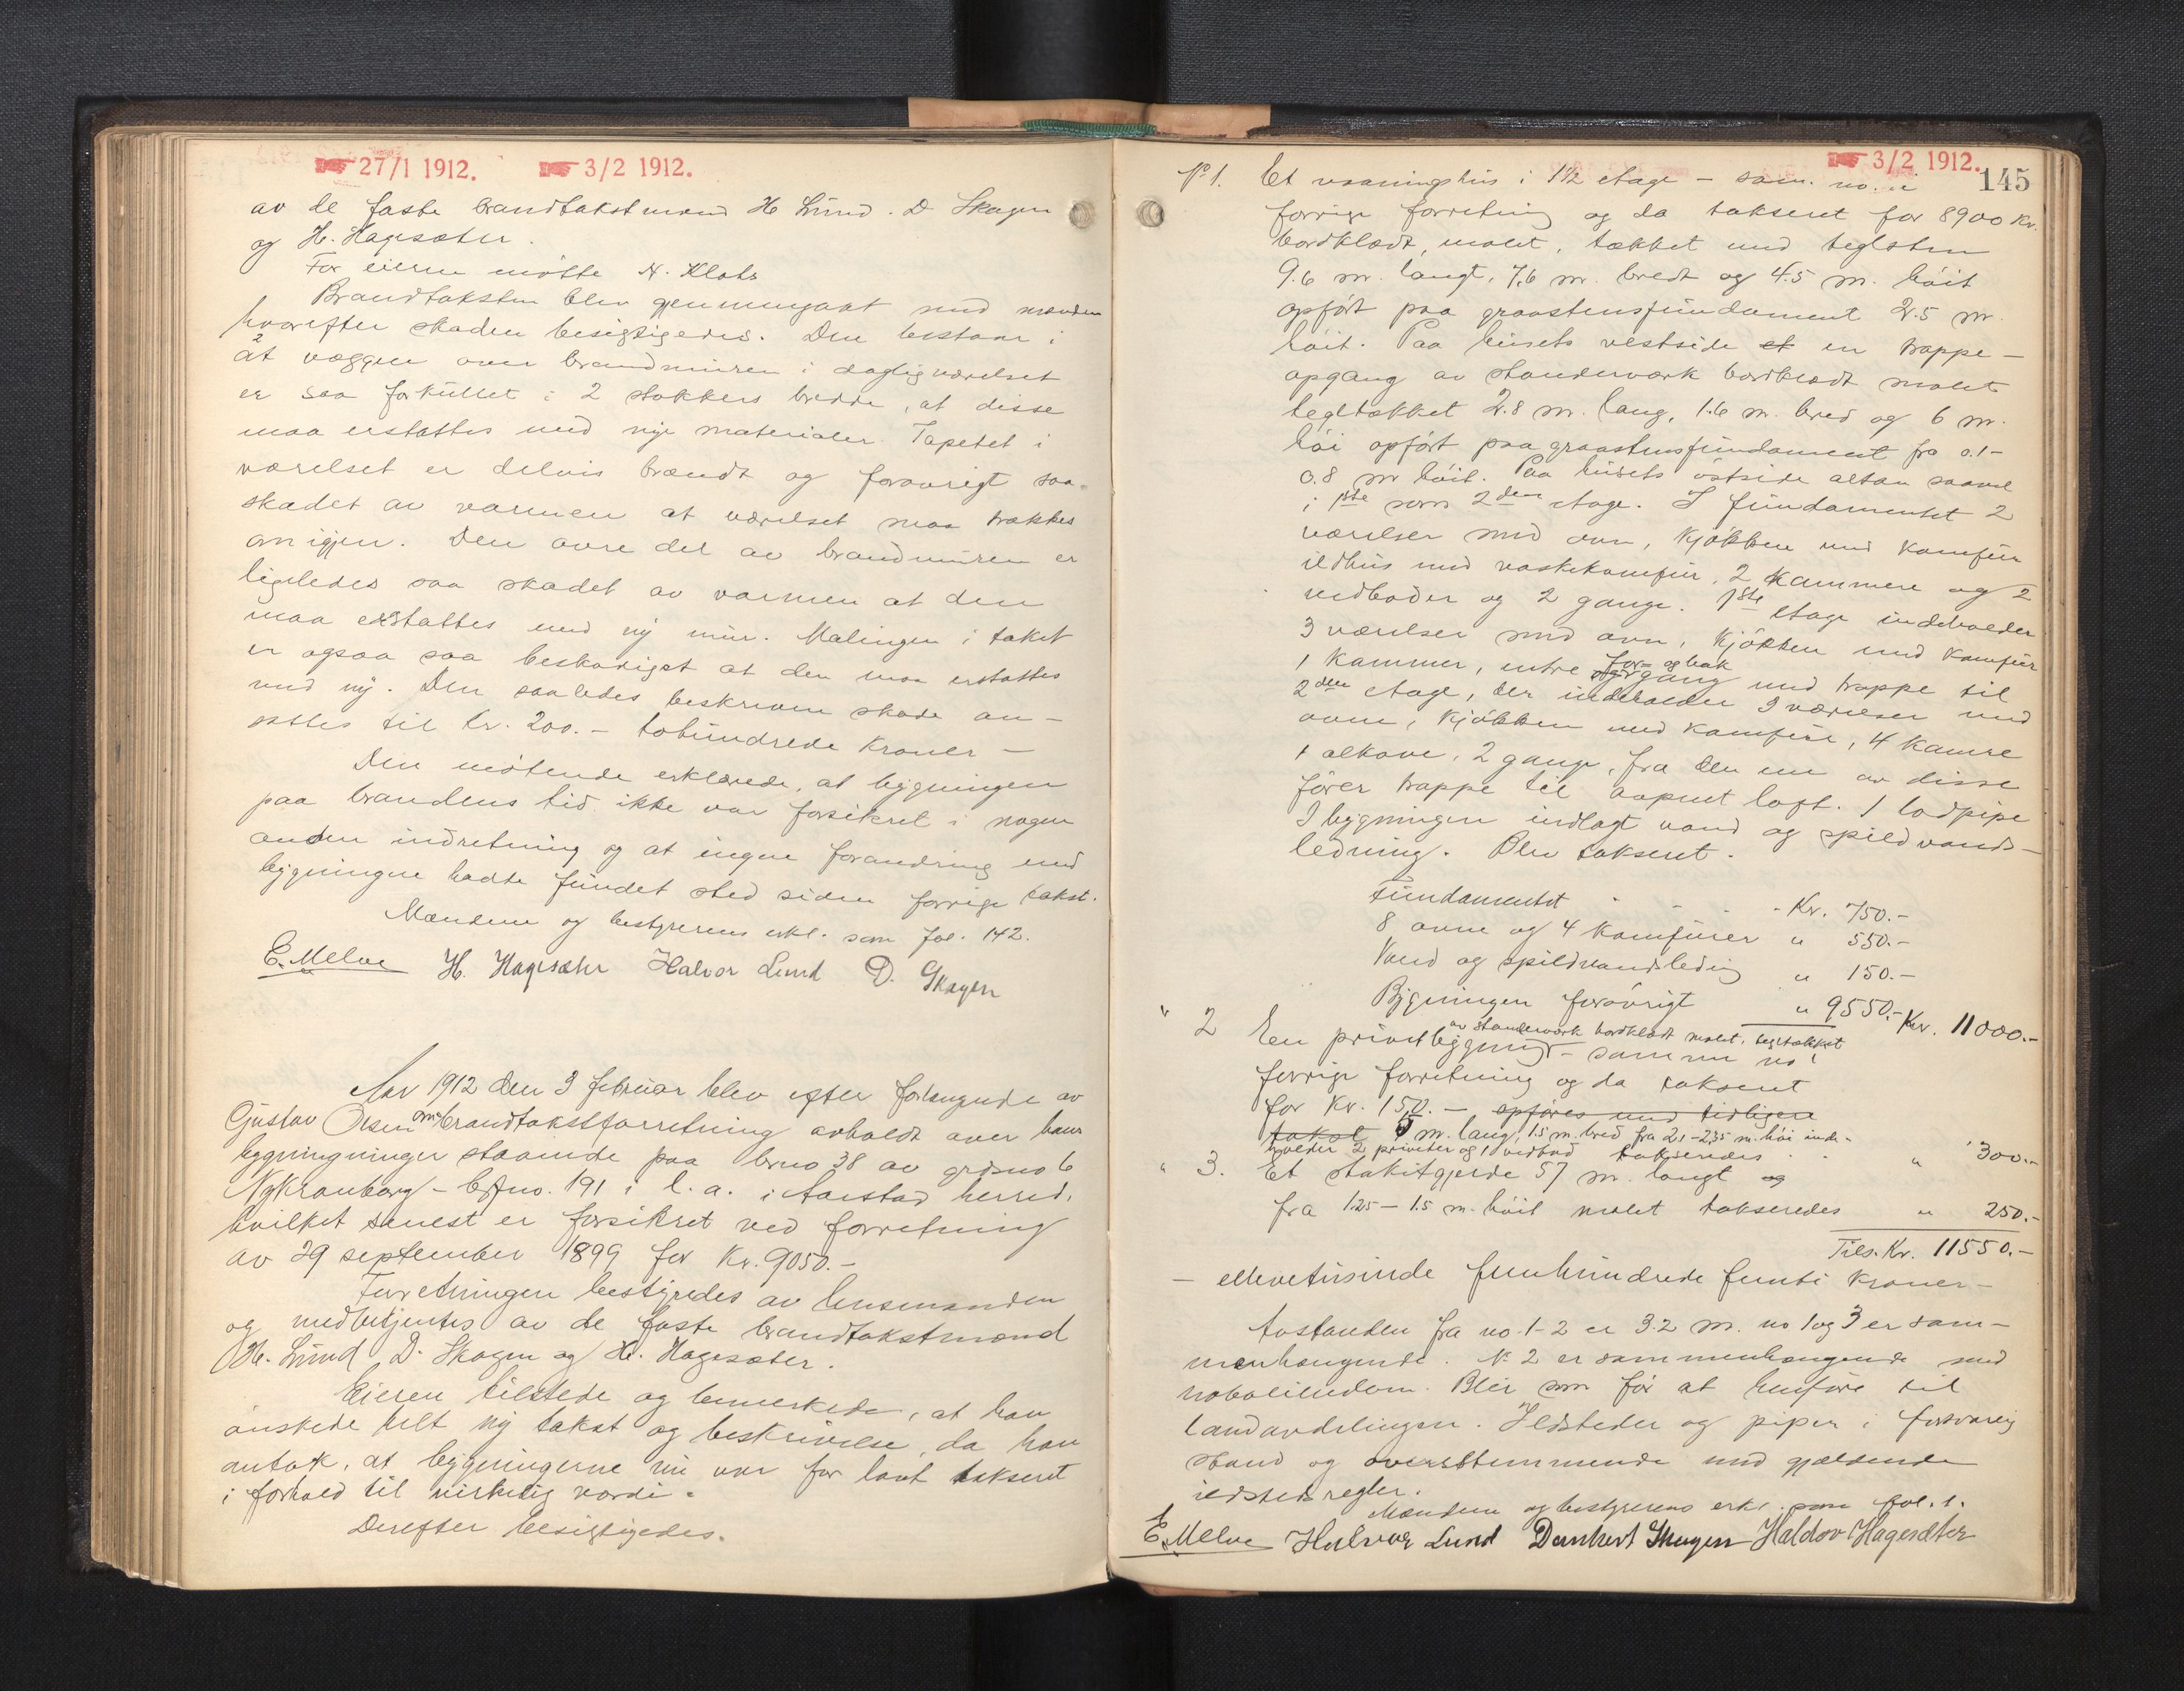 27/1 1912. 3/2 1912.
av de faste brandtakstmænd H Lund. D. Skagen
og H. Hagesæter.
For eieren møtte N. Klots
Brandtaksten blev gjennemgaat med mændene
hvorefter skaden besigtigedes. Den bestaar i
at væggen over brandmuren i dagligværelset
er saa forkullet i 2 stokkers bredde, at disse
maa erstattes med nye materialer. Tapetet i
værelset er delvis brændt og forøvrigt saa
skadet av varmen at værelset maa trækkes
om igjen. Den øvre del av brandmuren er
ligeledes saa skadet av varmen at den
maa erstattes med ny mur. Malingen i taket
er ogsaa saa beskadiget at den maa erstattes
med ny. Den saaledes beskrevne skade an-
sættes til kr. 200.- tohundrede kroner -
Den møtende erklærede, at bygningen
paa brandens tid ikke var forsikret i nogen
anden indretning og at ingen forandring med
bygningen hadde fundet sted siden forrige takst.
Mændene og bestyrerens erkl. som fol. 142.
E. Melve H. Hagesæter Halvor Lund D. Skagen
Aar 1912 den 3 februar blev efter forlangende av
Gustav Olsen om brandtakstforretning avholdt over hans
bygningninger staaende paa brno 38 av grdsno 6
Nykronborg - Bfno. 191 i l. a. i Aarstad herred,
hvilket senest er forsikret ved forretning
av 29 september 1899 for Kr. 9050.-
Forretningen bestyredes av lensmanden
og medbetjentes av de faste brandtakstmænd
H. Lund D. Skagen og H. Hagesæter.
Eieren tilstede og bemerkede, at han
ønskede helt ny takst og beskrivelse, da han
antok, at bygningerne nu var for lavt takseret
i forhold til virkelig værdi.
Derefter besigtigedes.
3/2 1912. 145
No 1. Et vaaningshus i 1½ etage - sam. no. i
forrige forretning og da takseret for 8900 Kr.
bordklædt, malet, tækket med teglsten
9.6 m. langt, 7.6 m. bredt og 4.5 m. høit
opført paa graastensfundament 2.5 m.
høit. Paa husets vestside et en trappe-
opgang av standerværk bordklædt malet
tegltækket 2.8 m. lang, 1.6 m. bred og 6 m.
høi opført paa graastensfundament fra 0.1-
0.8 m høit. Paa husets østside altan saavel
i 1ste som 2den etage. I fundamentet 2
værelser med ovn, Kjøkken med Komfur
ildhus med vaskekomfur, 2 kammere og 2
vedboder og 2 gange. 1ste etage indeholder
3 værelser med ovn, Kjøkken med Komfur
1 Kammer, entre for- og bakgang med trappe til
2den etage, der indeholder 3 værelser med
ovne, Kjøkken med Komfur, 4 kamre
1 alkove, 2 gange, fra den ene av disse
fører trappe til aapent loft. 1 lodpipe
I bygningen indlagt vand og spildvands-
ledning. Blev takseret.
Fundamentet - - - Kr. 750.-
8 ovne og 4 Komfurer " 550.-
Vand og spildvandsleding " 150.-
Bygningen forøvrigt " 9550.- Kr. 11000.-
av standerværk bordklædt malet, tegltækket
" 2 En privetbygning - samme no i
forrige forretning og da takseret
for Kr. 150.- opføres med tidligere
takst 5 m. lang, 1.5 m. bred fra 2.1-2.35 m. høi inde-
holder 2 priveter og 1 vedbod takseredes " 300.-
" 3. Et stakitgjerde 57 m. langt og
fra 1.25 - 1.5 m. høit malet takseredes " 250.-
Tils. Kr. 11550.-
- ellevetusinde femhundrede femti Kroner -
Avstanden fra no. 1-2 er 3.2 m. no 1 og 3 er sam-
menhængende. No 2 er sammenhængende med
naboeiendom. Blir som før at henføre til
landavdelingen. Ildsteder og piper i forsvarlig
stand og overstemmende med gjældende
ildstedsregler.
Mændene og bestyrerens erkl. som fol. 1.
E. Melve Halvor Lund Dankert Skagen Haldor Hagesæter